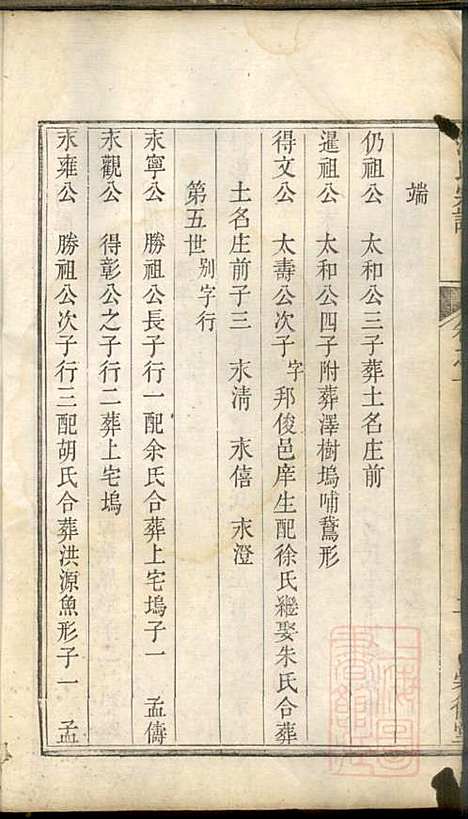 端
仍祖公　太和公三子葬土名庄前
暹祖公　太和公四子附葬澤樹塢哺鵞形
得文公　太壽公次子字邦俊邑庠生配徐氏繼娶朱氏合葬
土名庄前子三　永清　永僖　永澄
第五世　别字行
永寧公　勝祖公長子行一配余氏合葬上宅塢子一　孟儔
永觀公　得彰公之子行二葬上宅塢
永雍公　勝祖公次子行三配胡氏合葬洪源魚形子一　孟